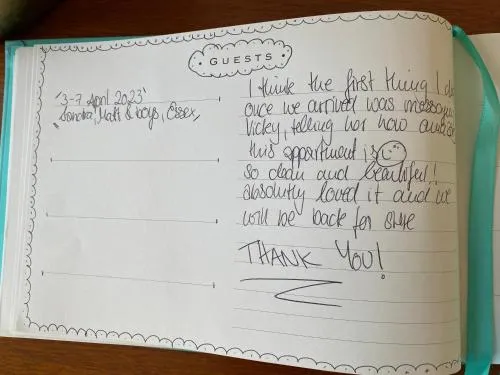 GUESTS
3-7 April 2023
Sandra, Matt & boys, Essex,
I think the first thing I d
once we arrived was messag
Vicky, telling her how amaz
this appartment is
so clean and beautiful!
absolutly loved it and we
will be back for sure
THANK YOU!